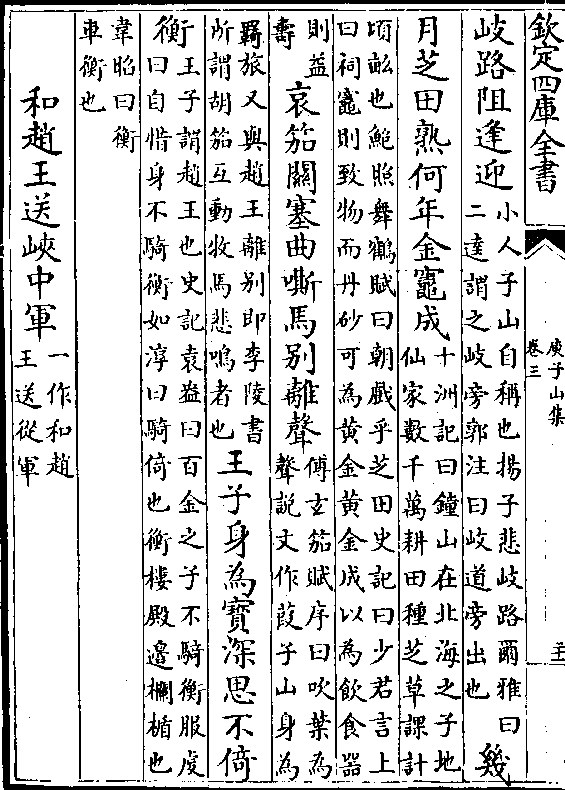 欽定四庫全書
庾子山集
卷三
岐路阻逢迎
小人子山自稱也揚子悲岐路爾雅曰
二達謂之岐旁郭注曰岐道旁出也
幾
月芝田熟何年金竈成
十洲記曰鐘山在北海之子地
仙家數千萬耕田種芝草課計
頃畝也鮑照舞鶴賦曰朝戲乎芝田史記曰少若言上
曰祠竈則致物而丹砂可為黃金黃金成以為飲食器
則益
壽
哀笳關塞曲嘶馬别離聲
傅玄笳賦序曰吹葉為
聲説文作葭子山身為
羈旅又與趙王離别即李陵書
所謂胡笳互動牧馬悲鳴者也
王子身為寶深思不倚
衡
王子謂趙王也史記袁盎曰百金之子不騎衡服虔
曰自惜身不騎衡如淳曰騎倚也衡樓殿邉欄楯也
韋昭曰衡
車衡也
和趙王送峽中軍
一作和趙
王送從軍